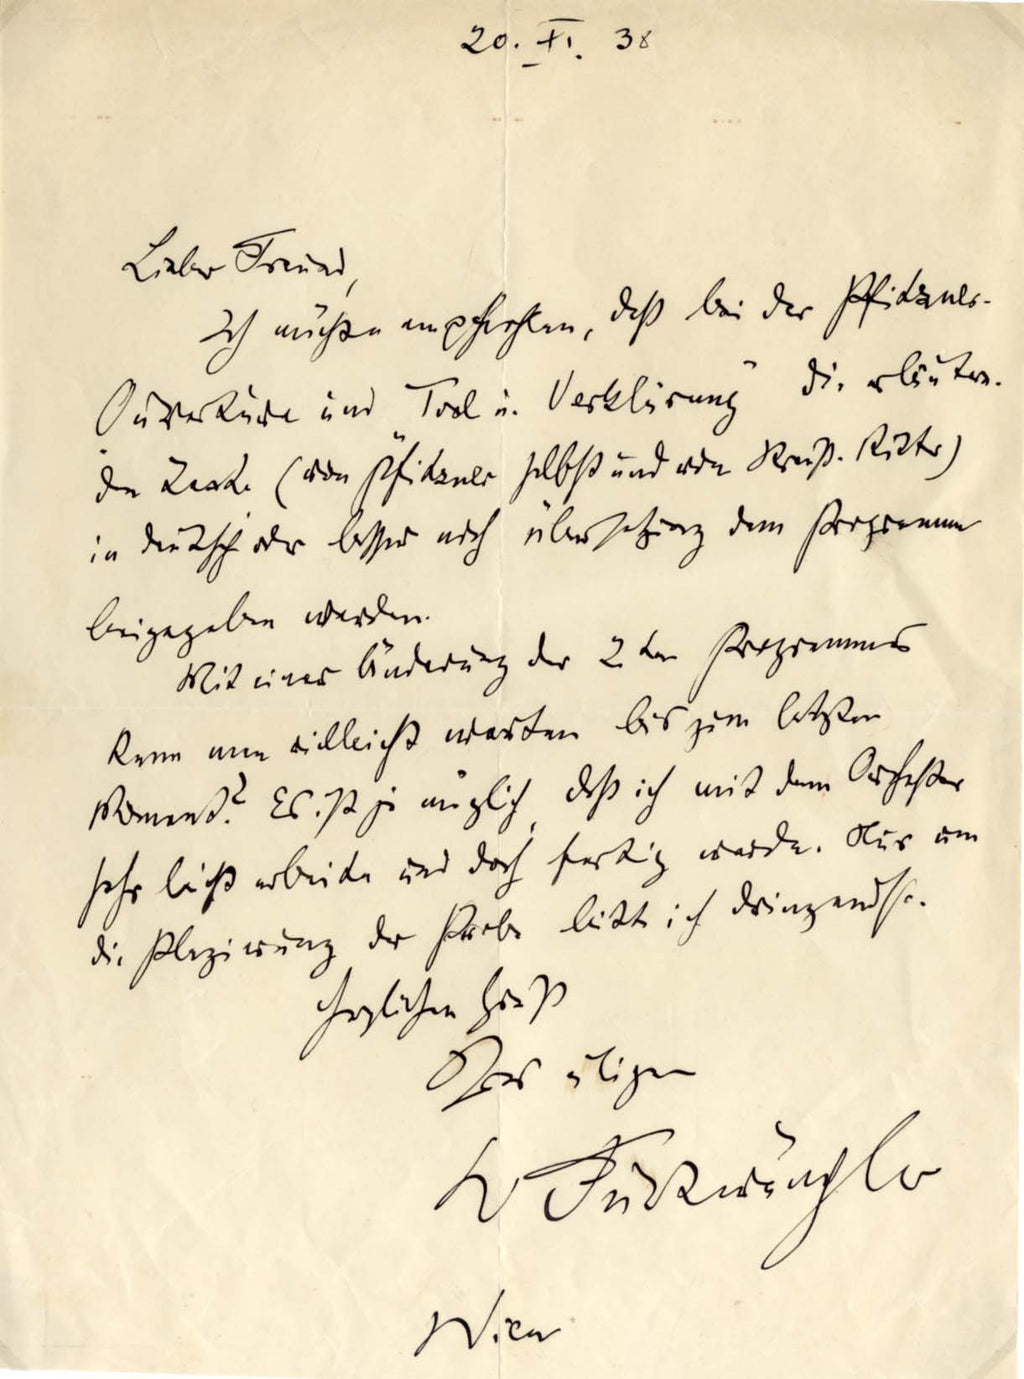 20. XI. 38
Lieber Freund,
Ich möchte empfehlen, daß bei der Pfitzner-
Ouvertüre und „Tod u. Verklärung" die erläutern-
den Texte (von Pfitzner selbst und von Strauß-Ritter)
in deutsch oder besser noch Übersetzung dem Programm
beigegeben werden.
Mit einer Änderung des 2ten Programmes
kann man vielleicht warten bis zum letzten
Moment? Es ist ja möglich, daß ich mit dem Orchester
sehr leicht arbeite und doch fertig werde. Nur um
die Plazierung der Probe bitte ich dringendst.
Herzlichen Gruß
Ihres
W Furtwängler
Wien